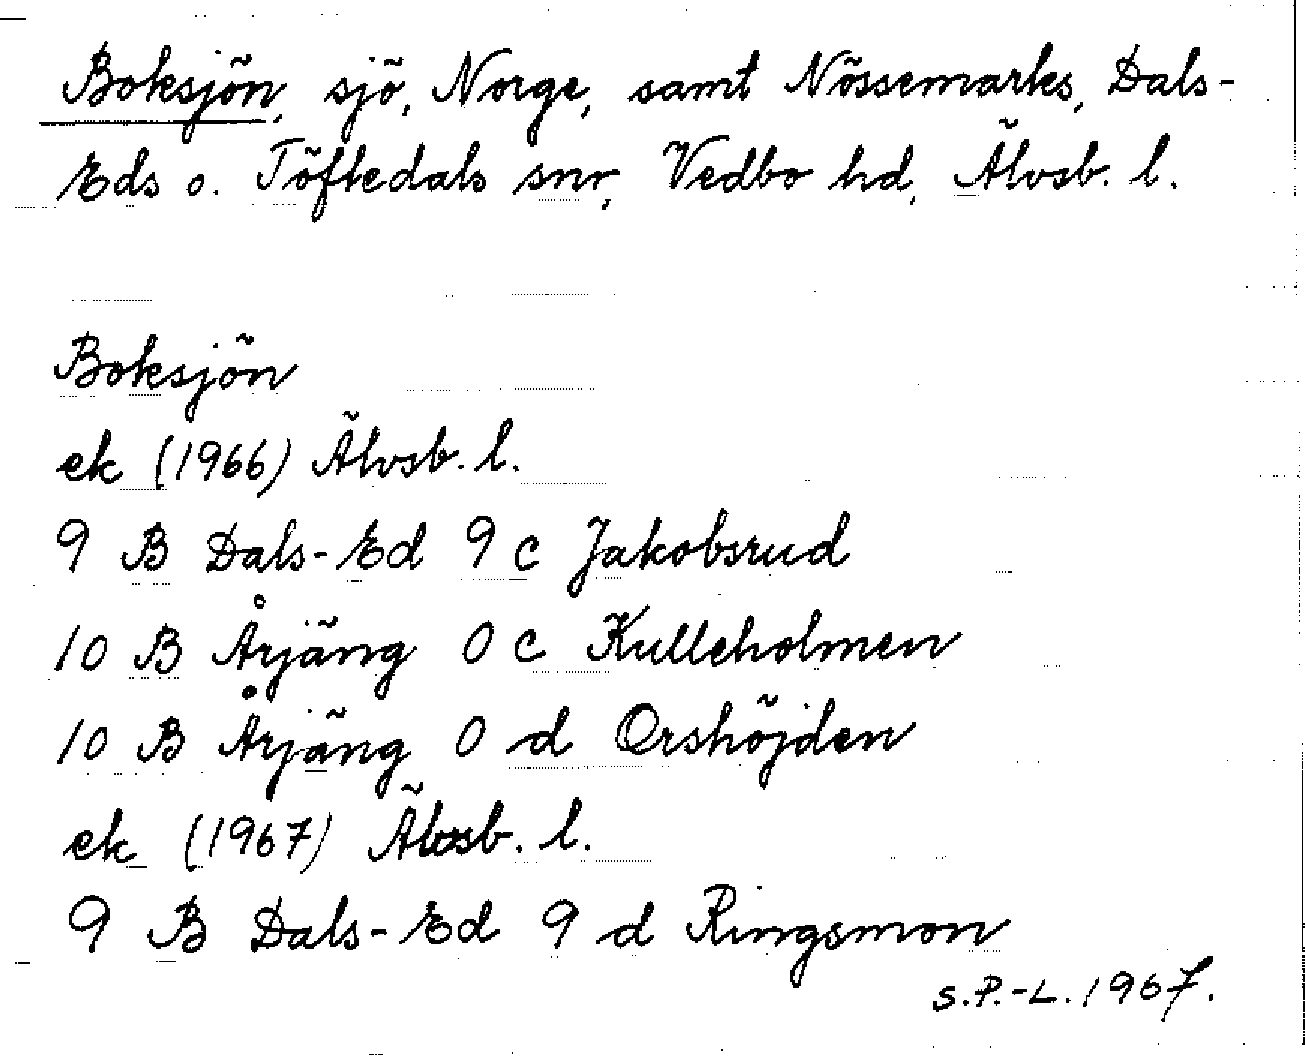 Boksjön, sjö, Norge, samt Nössemarks, Dals-
Eds o. Töftedals snr, Vedbo hd, Älvsb. l.
Boksjön
ek (1966) Älvsb. l.
9 B Dals-Ed 9 c Jakobsrud
10 B Årjäng 0 c Kulleholmen
10 B Årjäng 0 d Orshöjden
ek (1967) Älvsb. l.
9 B Dals-Ed 9 d Ringsmon
S.P.-L. 1967.